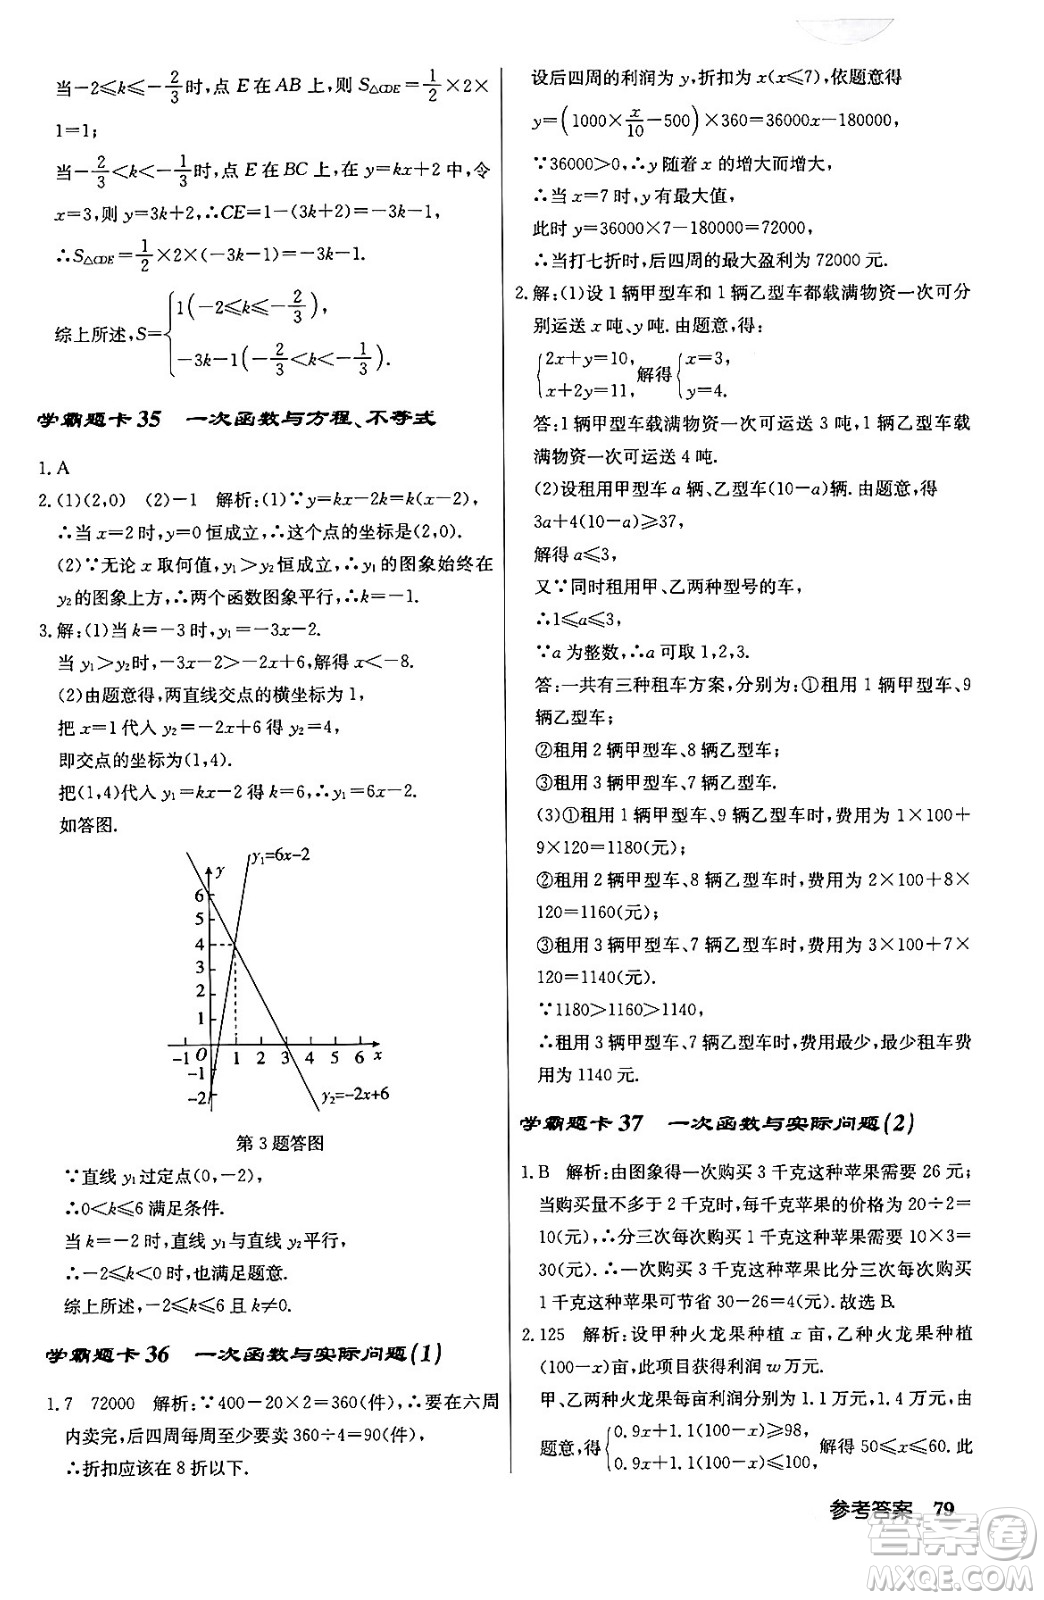 当-2≤k≤-2/3时,点 E 在 AB 上,则 S△CDE=1/2×2×
1=1;
当-2/3<k<-1/3时,点 E 在 BC 上,在 y=kx+2 中,令
x=3,则 y=3k+2,∴CE=1-(3k+2)=-3k-1,
∴S△CDE=1/2×2×(-3k-1)=-3k-1.
综上所述,S={1(-2≤k≤-2/3),
-3k-1(-2/3<k<-1/3).
学霸题卡 35 一次函数与方程、不等式
1. A
2. (1)(2,0) (2)-1 解析:(1)∵y=kx-2k=k(x-2),
∴当 x=2 时,y=0 恒成立,∴这个点的坐标是(2,0).
(2)∵无论 x 取何值,y1>y2恒成立,∴y1的图象始终在
y2的图象上方,∴两个函数图象平行,∴k=-1.
3. 解:(1)当 k=-3 时,y1=-3x-2.
当 y1>y2时,-3x-2>-2x+6,解得 x<-8.
(2)由题意得,两直线交点的横坐标为 1,
把 x=1代人 y2=-2x+6 得 y2=4,
即交点的坐标为(1,4).
把(1,4)代人 y1=kx-2 得 k=6,∴y1=6x-2.
如答图.
y y1=6x-2
6
5
4
3
2
1
-1 O 1 2 3 4 5 6 x
-1
-2 y2=-2x+6
第 3 题答图
∵直线 y1过定点(0,-2),
∴0<k≤6满足条件.
当 k=-2 时,直线 y1与直线 y2平行,
∴-2≤k<0 时,也满足题意.
综上所述,-2≤k≤6 且 k≠0.
学霸题卡 36 一次函数与实际问题(1)
1. 7 72000 解析:∵400-20×2=360(件),∴要在六周
内卖完,后四周每周至少要卖 360÷4=90(件),
∴折扣应该在 8 折以下.
设后四周的利润为 y,折扣为 x(x≤7),依题意得
y=(1000×x/10-500)×360=36000x-180000,
∵36000>0,∴y 随着 x 的增大而增大,
∴当 x=7 时,y 有最大值,
此时 y=36000×7-180000=72000,
∴当打七折时,后四周的最大盈利为 72000 元.
2. 解:(1)设 1 辆甲型车和 1 辆乙型车都载满物资一次可分
别运送 x 吨、y 吨. 由题意,得:
{2x+y=10, x+2y=11, 解得{x=3, y=4.
答:1 辆甲型车载满物资一次可运送 3 吨,1 辆乙型车载
满物资一次可运送 4 吨.
(2)设租用甲型车 a 辆、乙型车(10-a)辆. 由题意,得
3a+4(10-a)≥37,
解得 a≤3,
又∵同时租用甲、乙两种型号的车,
∴1≤a≤3,
∵a 为整数,∴a 可取 1,2,3.
答:一共有三种租车方案,分别为:①租用 1 辆甲型车、9
辆乙型车;
②租用 2 辆甲型车、8 辆乙型车;
③租用 3 辆甲型车、7 辆乙型车.
(3)①租用 1 辆甲型车、9 辆乙型车时,费用为 1×100+
9×120=1180(元);
②租用 2 辆甲型车、8 辆乙型车时,费用为 2×100+8×
120=1160(元);
③租用 3 辆甲型车、7 辆乙型车时,费用为 3×100+7×
120=1140(元).
∵1180>1160>1140,
∴租用 3 辆甲型车、7 辆乙型车时,费用最少,最少租车费
用为 1140 元.
学霸题卡 37 一次函数与实际问题(2)
1. B 解析:由图象得一次购买 3 千克这种苹果需要 26 元;
当购买量不多于 2 千克时,每千克苹果的价格为 20÷2=
10(元),∴分三次每次购买 1 千克这种苹果需要 10×3=
30(元),∴一次购买 3 千克这种苹果比分三次每次购买
1 千克这种苹果可节省 30-26=4(元). 故选 B.
2. 125 解析:设甲种火龙果种植 x 亩,乙种火龙果种植
(100-x)亩,此项目获得利润 w 万元.
甲、乙两种火龙果每亩利润分别为 1.1 万元、1.4 万元,由
题意,得{0.9x+1.1(100-x)≥98, 0.9x+1.1(100-x)≤100, 解得 50≤x≤60. 此
参考答案 79
答案圈
MXQE.COM